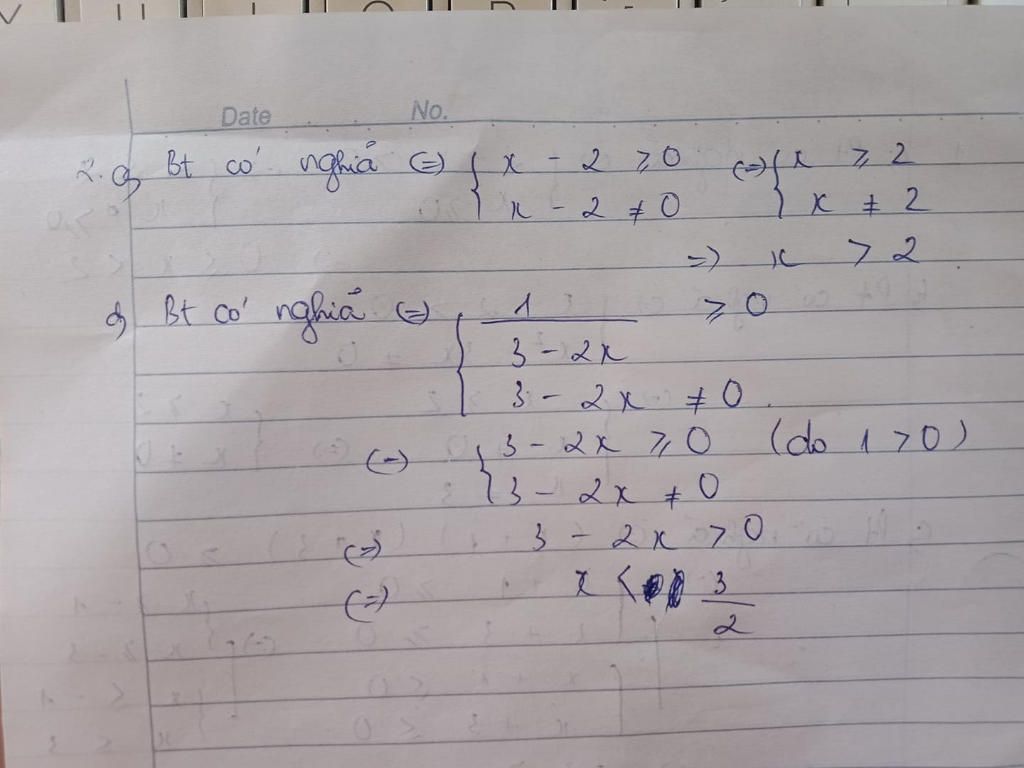 Date No.
2. a) Bt có nghĩa (=) { x - 2 ⩾ 0 (=) { x ⩾ 2
x - 2 ≠ 0 x ≠ 2
=) x > 2
Bt có nghĩa (=) { 1 ⩾ 0
3 - 2x
3 - 2x ≠ 0
(=) { 3 - 2x ⩾ 0 (do 1 > 0)
3 - 2x ≠ 0
(=) 3 - 2x > 0
(=) x < 3
2